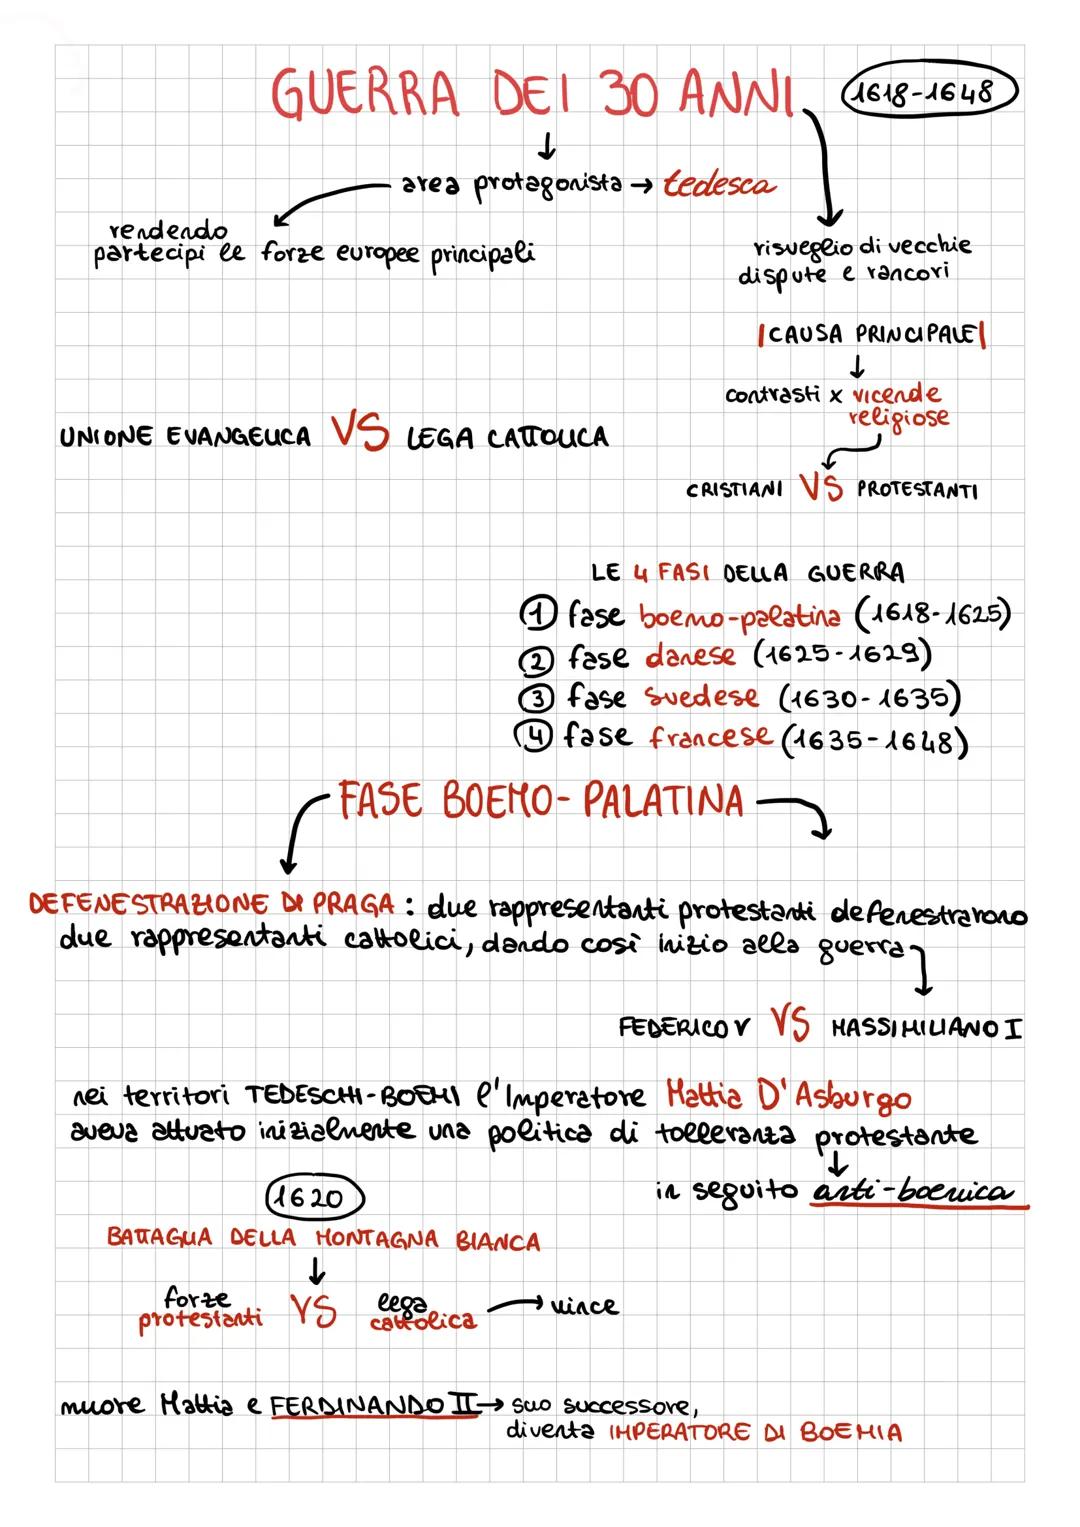 GUERRA DEI 30 ANNI 1618-1648
↓
area protagonista → tedesca
rendendo
partecipi le forze europee principali
risveglio di vecchie
dispute e rancori
|CAUSA PRINCIPALE|
↓
contrasti x vicende
religiose
UNIONE EVANGELICA VS LEGA CATTOLICA
CRISTIANI VS PROTESTANTI
LE 4 FASI DELLA GUERRA
1 fase boemo-palatina (1618-1625)
2 fase danese (1625-1629)
3 fase svedese (1630-1635)
4 fase francese (1635-1648)
FASE BOEMO-PALATINA
DEFENESTRAZIONE DI PRAGA: due rappresentanti protestanti defenestrarono
due rappresentanti cattolici, dando così inizio alla guerra
FEDERICO V VS MASSIMILIANO I
nei territori TEDESCHI-BOEMI l'Imperatore Mattia D'Asburgo
aveva attuato inizialmente una politica di tolleranza protestante
↓
in seguito anti-boemica
1620
BATTAGLIA DELLA MONTAGNA BIANCA
↓
forze
protestanti VS lega
cattolica → vince
muore Mattia e FERDINANDO II → suo successore,
diventa IMPERATORE DI BOEMIA